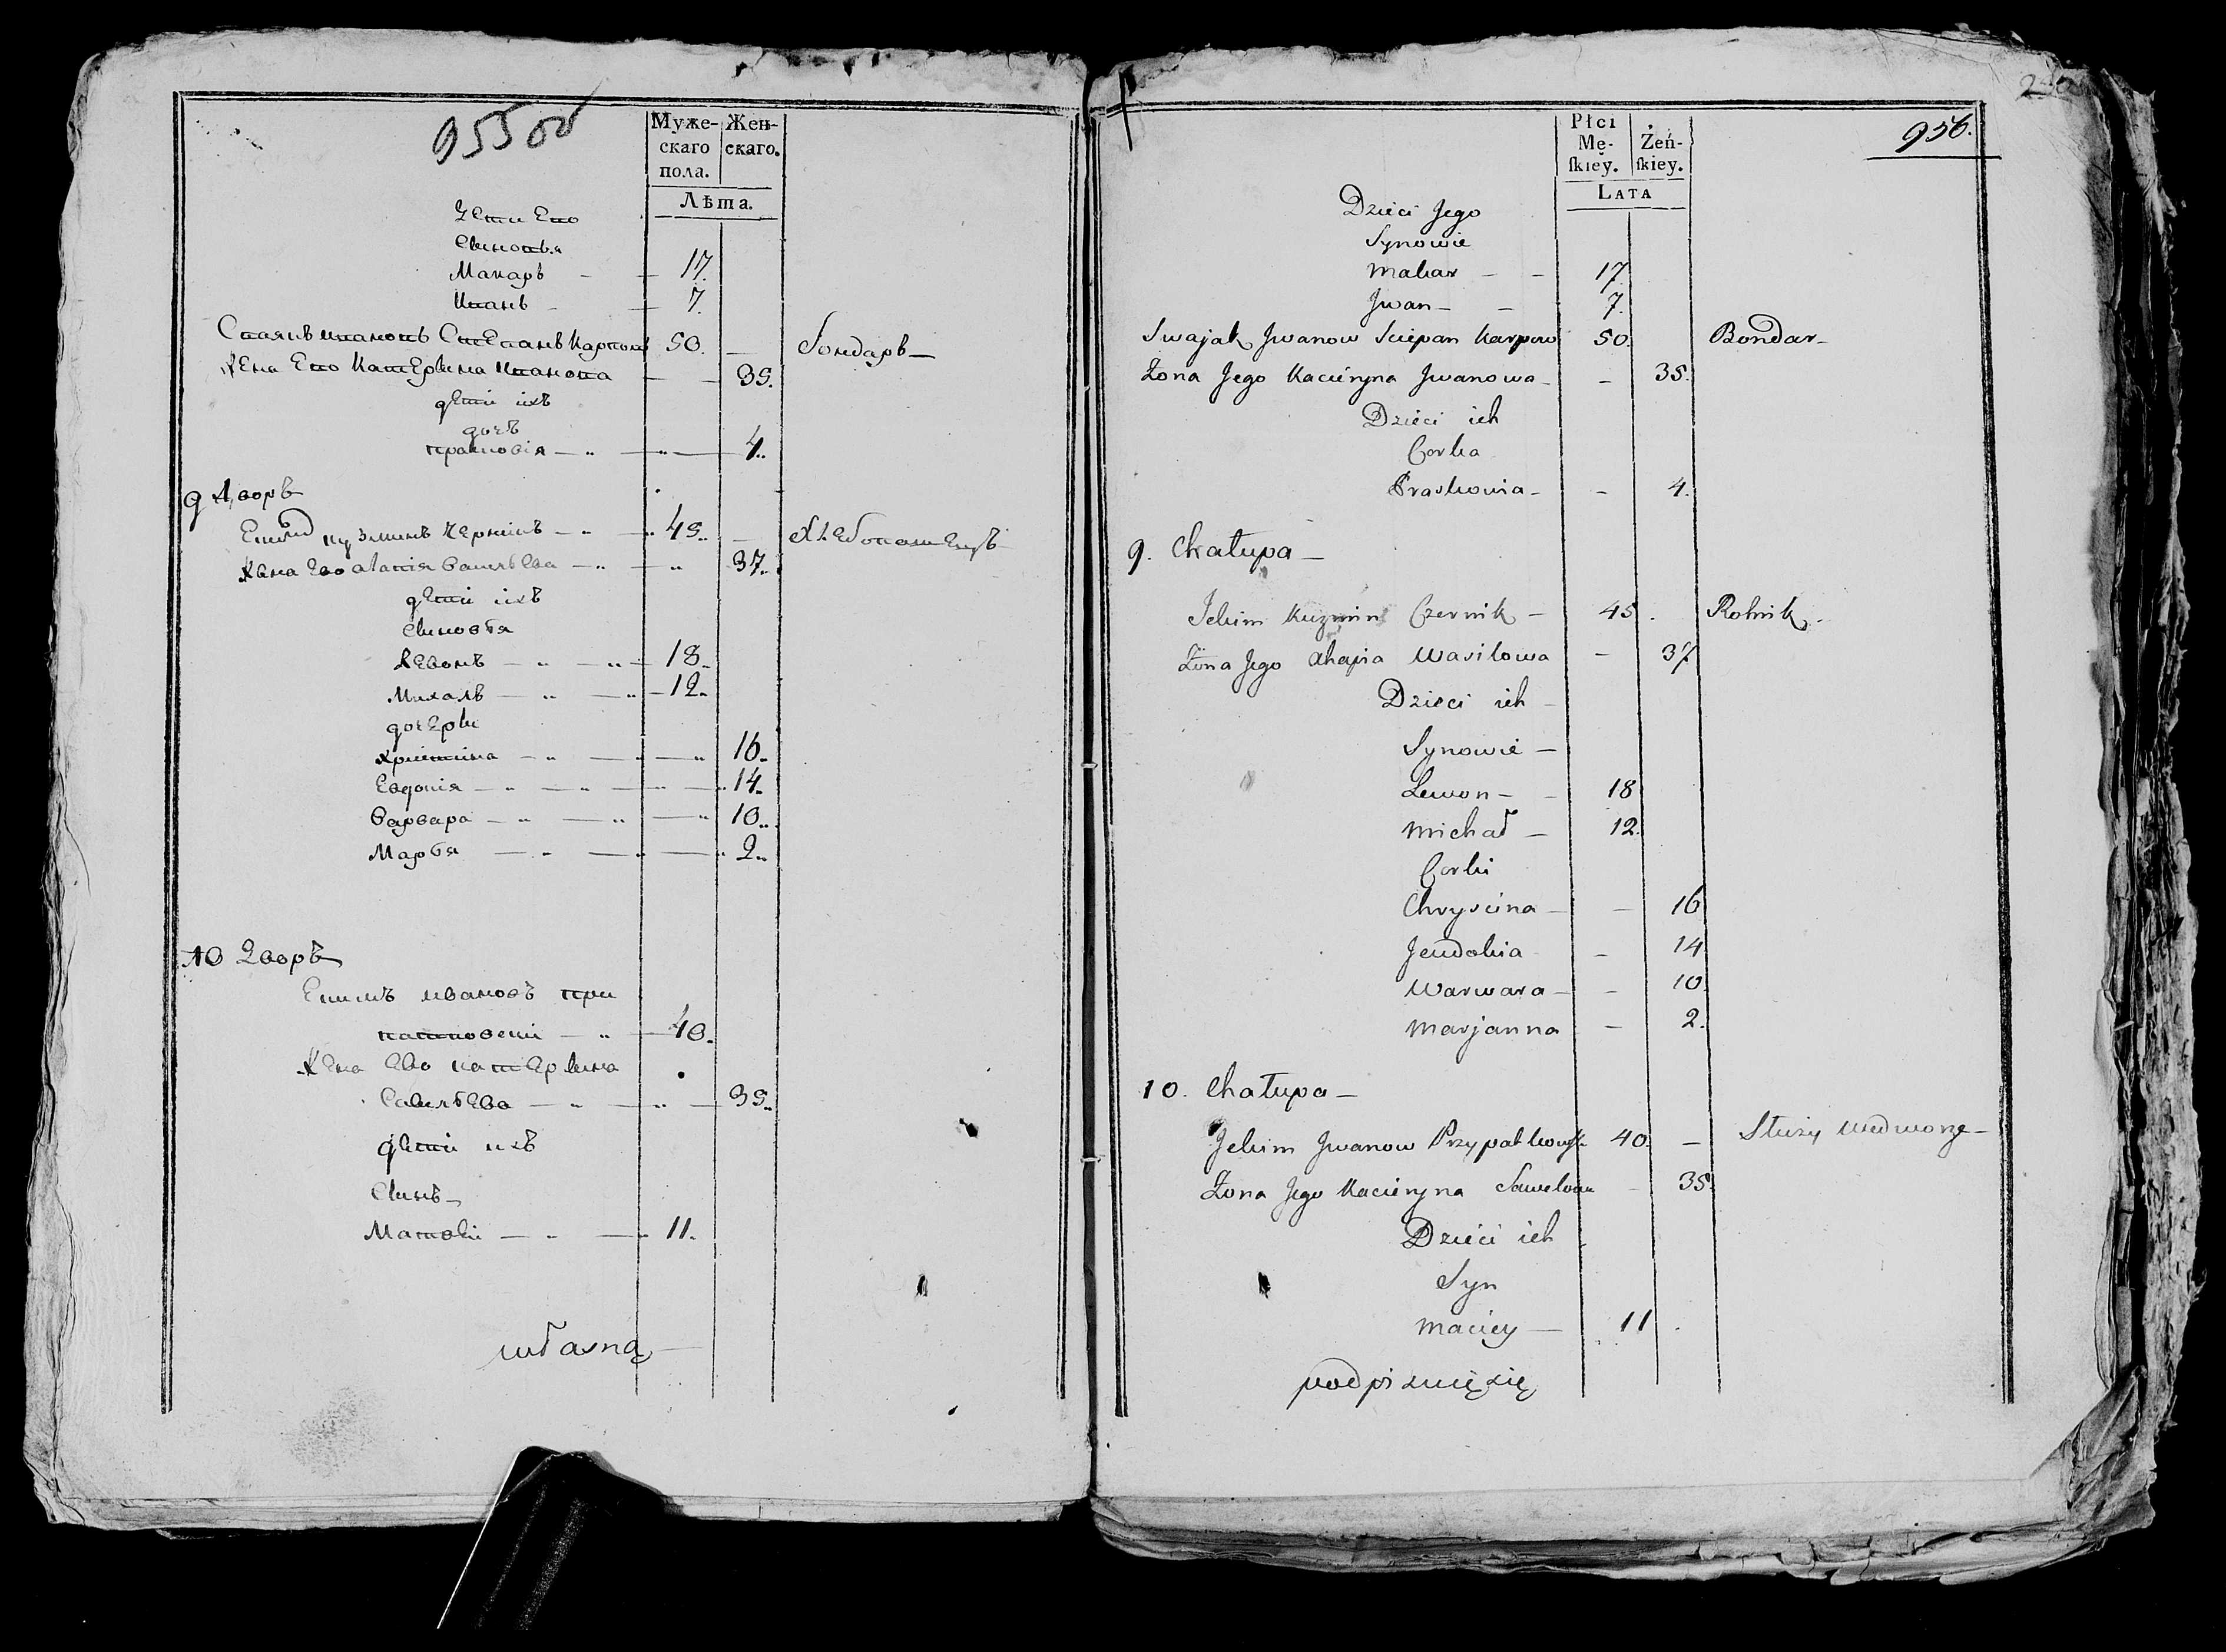 955 об
Муже- Жен-
скаго скаго.
пола.
Лѣта.
Дети Ево
Сыновья
Макаръ — — 17.
Иванъ — — 7.
Сваякъ ивановъ Степанъ Карповъ 50. — бондаръ —
Жена Ево Катерына Иванова — — 35.
дети ихъ
дочъ
прасковія — „ — „ — 4„
9 дворъ
Екимъ кузминъ Черникъ — „ — „ 45„ — Хлебопашецъ
Жена Ево агапія василѣева — „ — „ 37„
дети ихъ
Сыновѣя
Левонъ — „ — „ — 18„
Михалъ — „ — „ — 12„
дочеры
христина — „ — „ — „ 16„
Евдокія — „ — „ — „ — „ 14„
варвара — „ — „ — „ 10„
Марѣя — „ — „ — „ 2„
10 Дворъ
Екимъ ивановъ при
патковски — „ — 40„
Жена Ево катерына
Савелѣева — „ — „ — 35„
дети ихъ
Сынъ —
Матвеи — „ — „ 11„
własną —
956.
Płci
Mę- Żeń-
ſkiey. ſkiey.
Lata
Dzieci Jego
Synowie
Makar — — 17
Jwan — — 7.
Swajak Jwanow Sciepan Karpow 50. Bondar —
Żona Jego Kacieryna Jwanowa — — 35.
Dzieci ich
Corka
Praskowia — — 4.
9. Chałupa —
Jekim Kuzmin Czernik — 45. Rolnik.
Żona Jego Ahapia Wasilowa — 37
Dzieci ich —
Synowie —
Lewon — — 18
Michał — 12.
Corki
Chryscina — — 16
Jeudokia — 14
Warwara — — 10
Marjanna — 2.
10. Chałupa —
Jekim Jwanow Przypatkowsk 40. — Służy
Żona Jego Kacieryna Sawelowa — 35.
Dzieci ich
Syn
Maciey — 11
podpisuię się